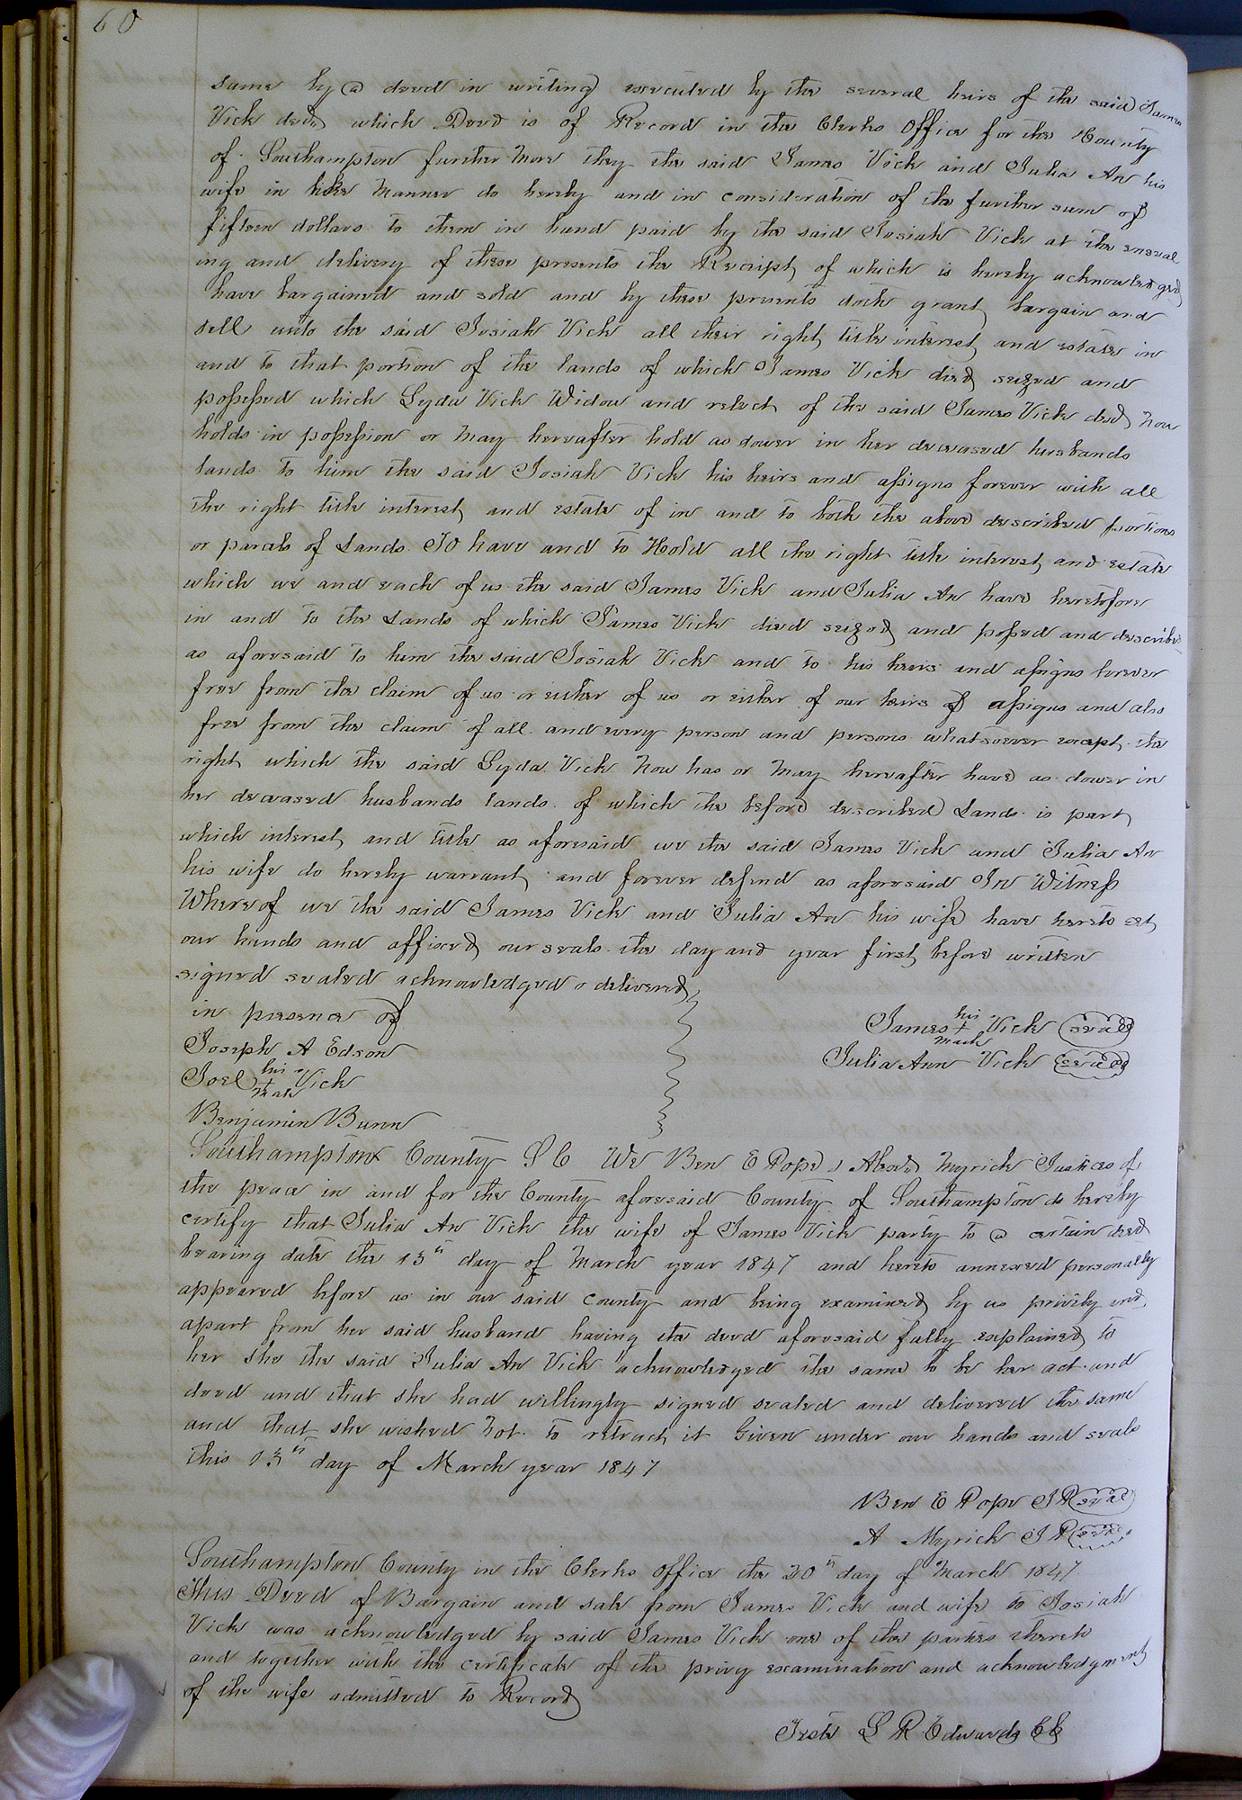 60
same by a deed in writing executed by the several heirs of the said James
Vick decd, which Deed is of Record in the Clerks Office for the County
of Southampton further More they the said James Vick and Julia An his
wife in like Manner do hereby and in consideration of the further sum of
fifteen dollars to them in hand paid by the said Josiah Vick at the enseal
ing and delivery of these presents the Receipt of which is hereby acknowledged
have bargained and sold and by these presents doth grant bargain and
sell unto the said Josiah Vick all their right title interest and estate in
and to that portion of the lands of which James Vick died seized and
possessed which Lyda Vick Widow and relect of the said James Vick decd, Now
holds in possession or May hereafter hold as dower in her deceased husbands
lands to him the said Josiah Vick his heirs and assigns forever with all
the right title interest and estate of in and to both the above described portions
or parcels of Lands To have and to Hold all the right title interest and estate
which we and each of us the said James Vick and Julia An have heretofore
in and to the Lands of which James Vick died seized and possed and describe
as aforesaid to him the said Josiah Vick and to his heirs and assigns forever
free from the claim of us or either of us or either of our heirs of assigns and also
free from the claim of all and every person and persons whatsoever except the
right which the said Lyda Vick Now has or May hereafter have as dower in
her deceased husbands lands of which the before described Lands is part
which interest and title as aforesaid we the said James Vick and Julia An
his wife do hereby warrant and forever defend as aforesaid In Witness
Whereof we the said James Vick and Julia An his wife have hereto set
our hands and affixed our seals the day and year first before written
signed sealed acknowledged & delivered
in presence of
James his + mark Vick seal
Joseph A Edson
Julia Ann Vick seal
Joel his + mark Vick
Benjamin Bunn
Southampton County S C We Ben E Pope & Myrick Justices of
the peace in and for the County aforesaid County of Southampton do hereby
certify that Julia An Vick the wife of James Vick party to a certain deed
bearing date the 13th day of March year 1847 and hereto annexed personally
appeared before as in our said county and being examined by us privily and
apart from her said husband having the deed aforesaid fully explained to
her she the said Julia An Vick acknowledged the same to be her act and
deed and that she had willingly signed sealed and delivered the same
and that she wished Not to retract it Given under our hands and seals
this 13th day of March year 1847
Ben E Pope J P seal
A Myrick J P seal
Southampton County in the Clerks office the 20th day of March 1847
This Deed of Bargain and sale from James Vick and wife to Josiah
Vick was acknowledged by said James Vick one of the parties thereto
and together with the certificate of the privy examination and acknowledgment
of the wife admitted to Record
Teste L R Edwards CC